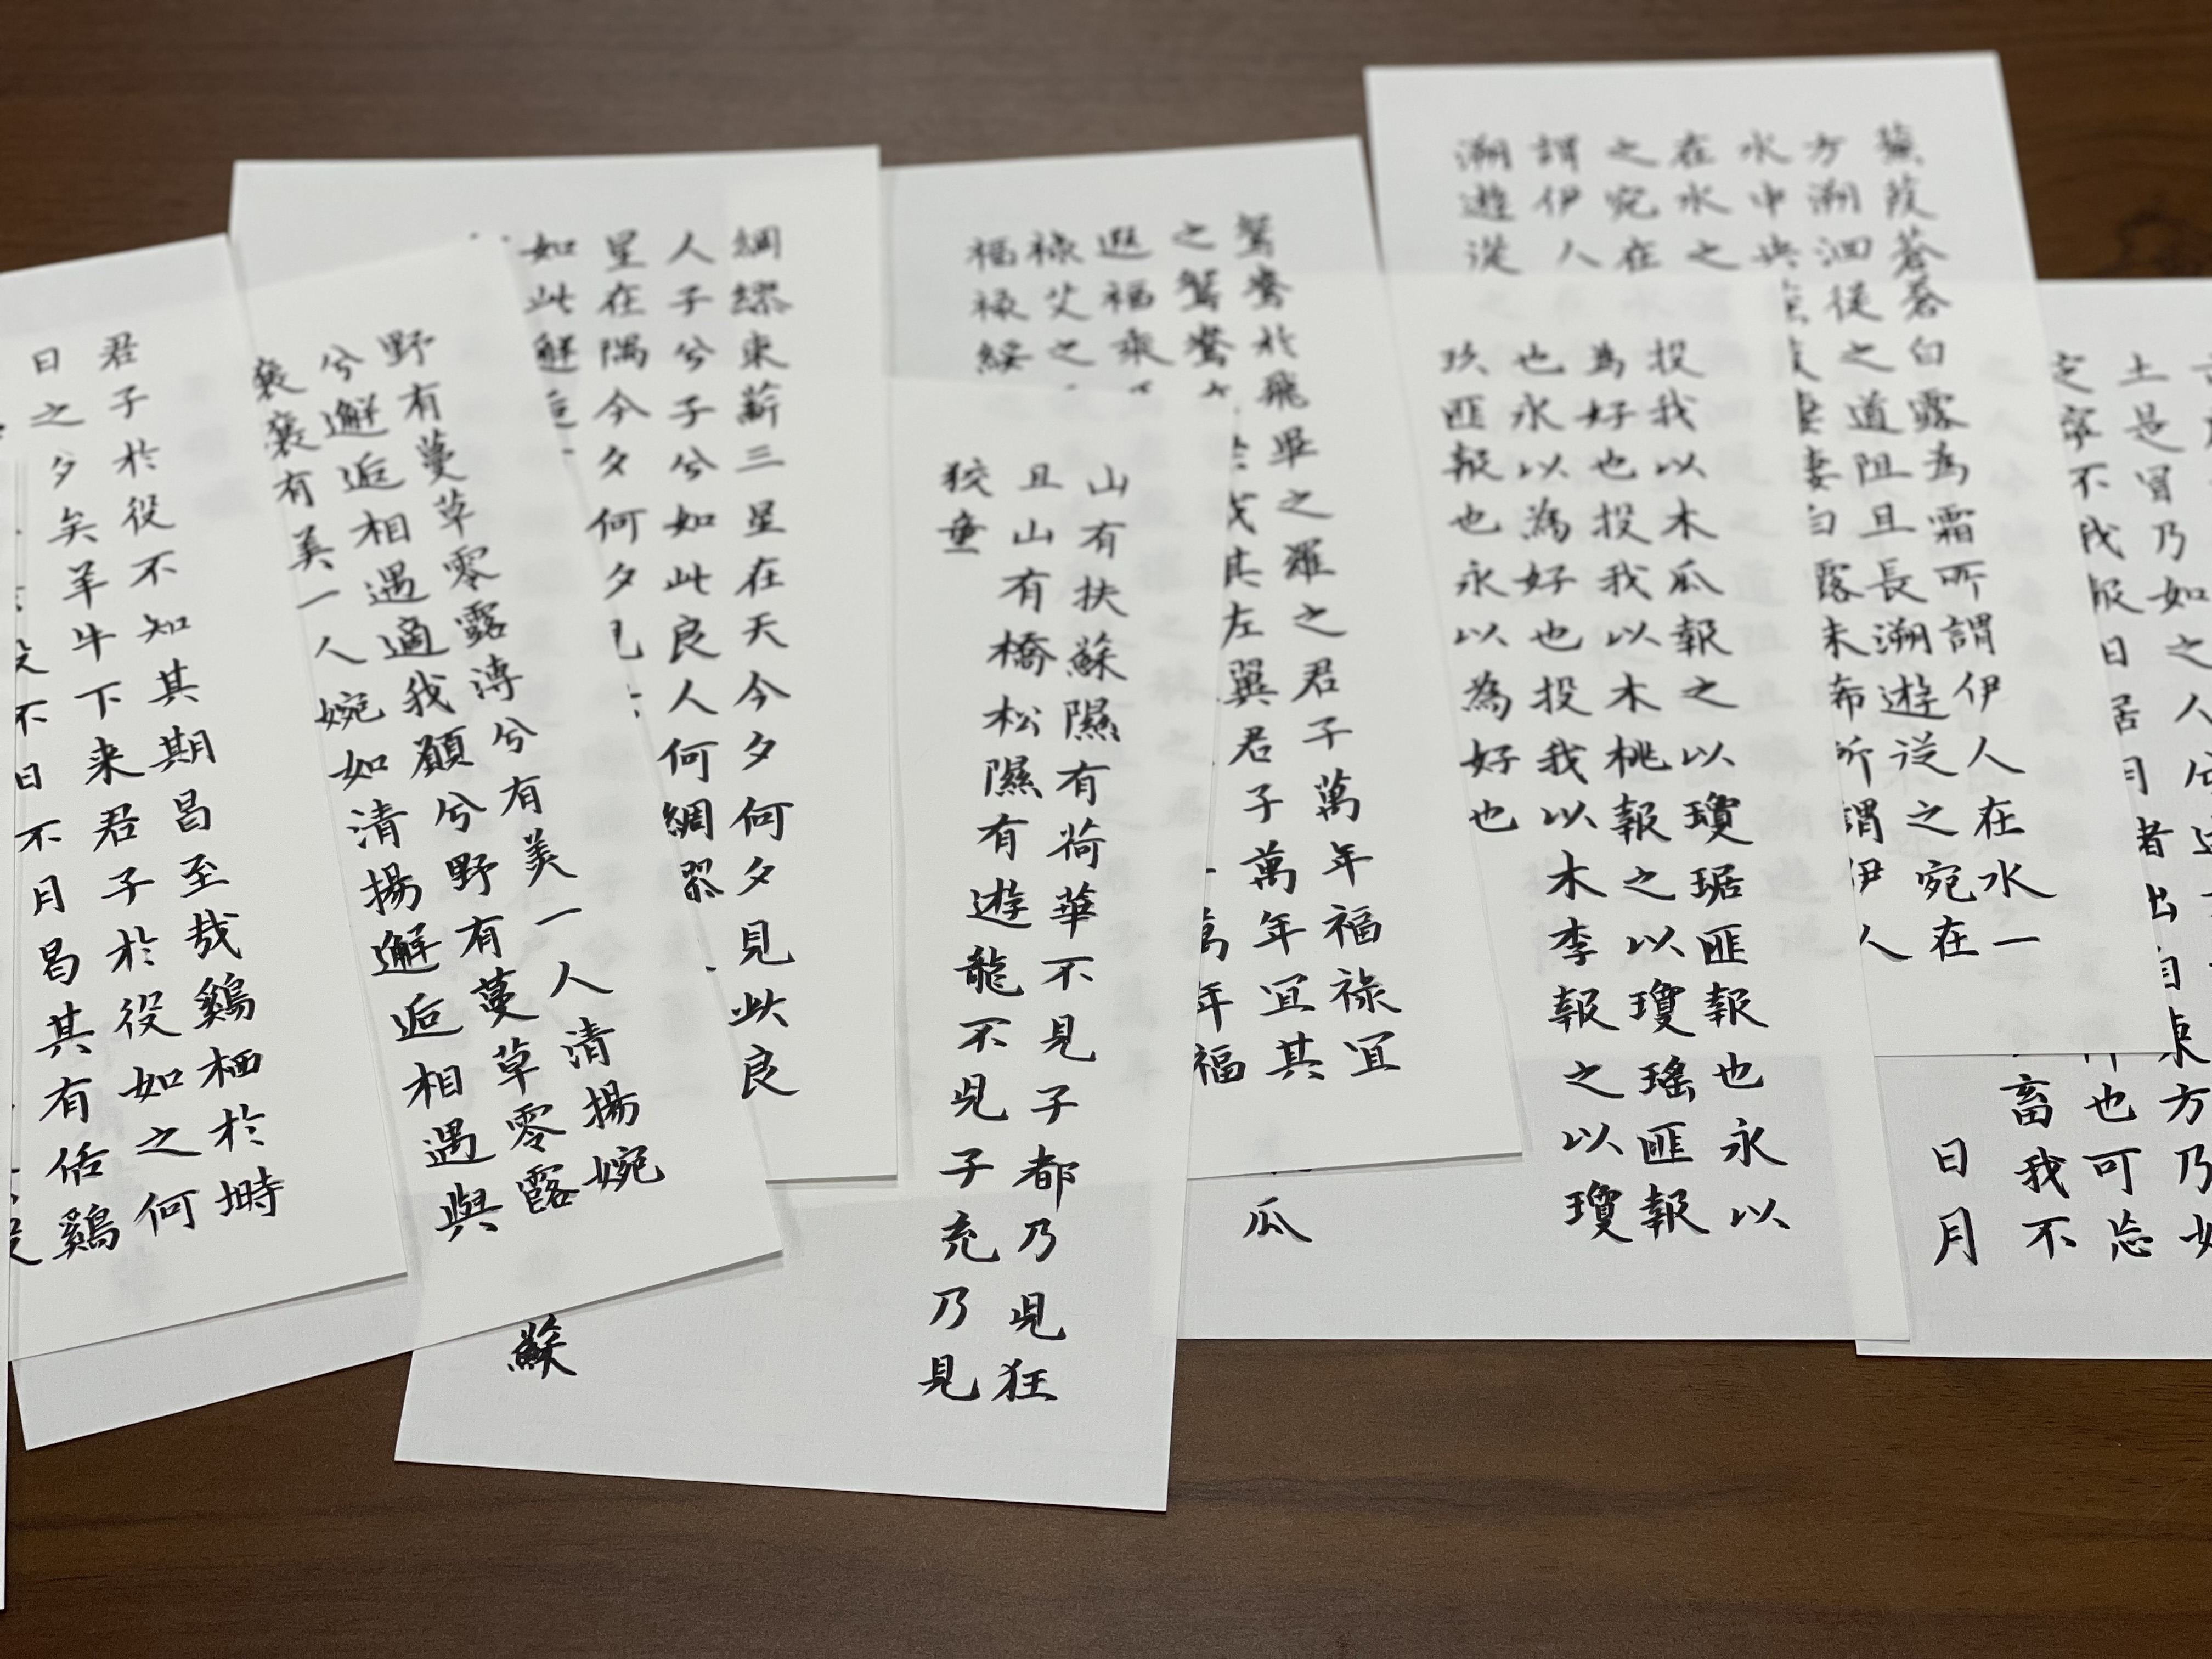 土是冒乃如之人
定寧不我報日居月
者出自東方乃如
也可忘
畜我不
日月
蒹葭蒼蒼白露為霜所謂伊人在水一
方溯洄從之道阻且長溯遊從之宛在
水中央
萋萋白露未晞所謂伊人
在水之
之宛在
謂伊人
溯遊從
投我以木瓜報之以瓊琚匪報也永以
為好也投我以木桃報之以瓊瑤匪報
也永以為好也投我以木李報之以瓊
玖匪報也永以為好也
瓜
鴛鴦於飛畢之羅之君子萬年福祿宜
之鴛鴦
戢其左翼君子萬年宜其
遐福乘
萬年福
祿艾之
福祿綏
山有扶蘇隰有荷華不見子都乃見狂
且山有橋松隰有遊龍不見子充乃見
狡童
蘇
綢繆束薪三星在天今夕何夕見此良
人子兮子兮如此良人何綢繆
星在隅今夕何夕見
如此邂逅
野有蔓草零露漙兮有美一人清揚婉
兮邂逅相遇適我願兮野有蔓草零露
襄襄有美一人婉如清揚邂逅相遇與
君子於役不知其期曷至哉鷄栖於塒
日之夕矣羊牛下来君子於役如之何
役不日不月曷其有佸鷄